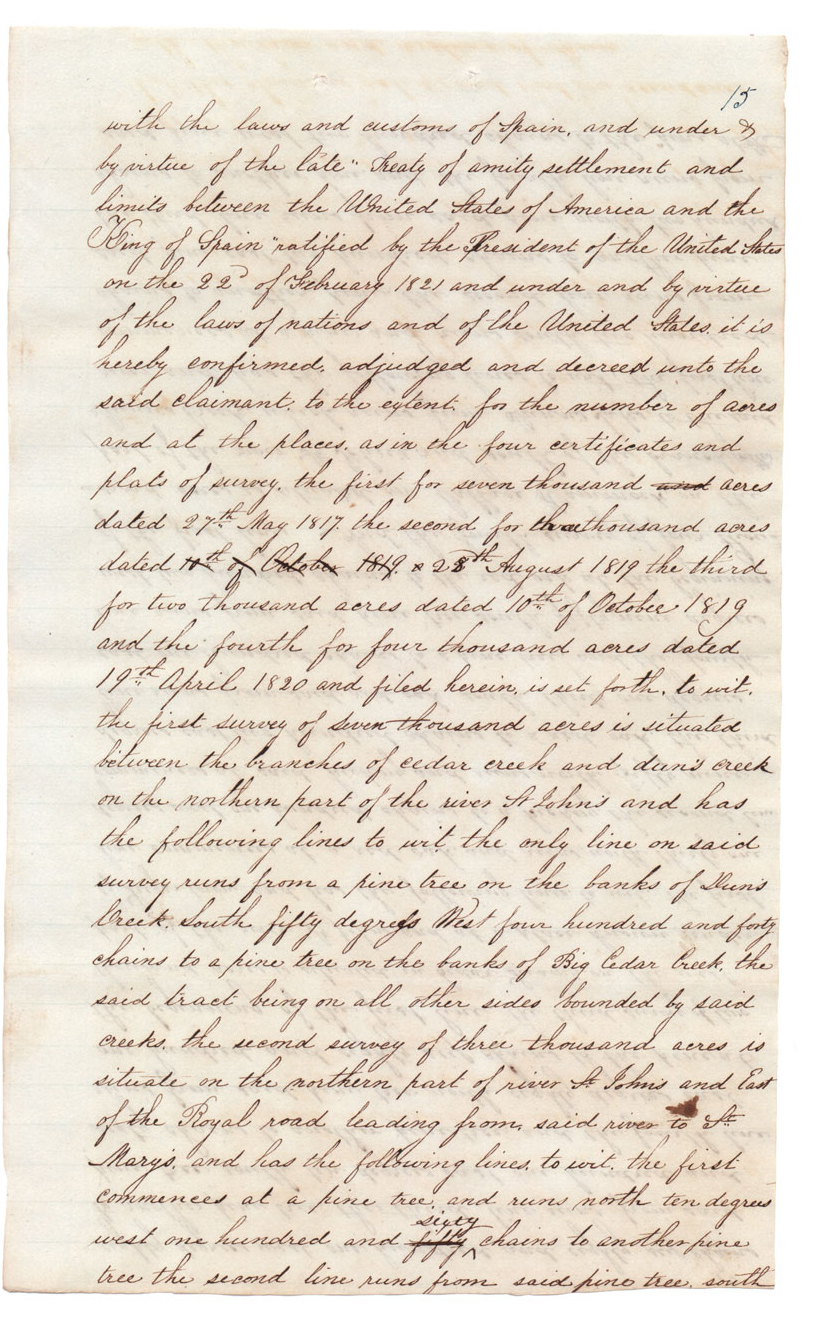 15
with the laws and customs of Spain, and under &
by virtue of the late "Treaty of amity settlement and
limits between the United States of America and the
King of Spain" ratified by the President of the United States
on the 22d of February 1821 and under and by virtue
of the laws of nations and of the United States, it is
hereby confirmed, adjudged and decreed unto the
said claimant, to the extent, for the number of acres
and at the places, as in the four certificates and
plats of survey, the first for seven thousand and acres
dated 27th May 1817. the second for three thousand acres
dated 10th of October 1819. x 28th August 1819 the third
for two thousand acres dated 10th of October 1819
and the fourth for four thousand acres dated
19th April 1820 and filed herein, is set forth, to wit,
the first survey of seven thousand acres is situated
between the branches of cedar creek and dun's creek
on the northern part of the river St John's and has
the following lines to wit, the only line on said
survey runs from a pine tree on the banks of Dun's
Creek, South fifty degrees West four hundred and forty
chains to a pine tree on the banks of Big Cedar Creek, the
said tract being on all other sides bounded by said
creeks, the second survey of three thousand acres is
situate on the northern part of river St John's and East
of the Royal road leading from, said river to St.
Mary's, and has the following lines, to wit, the first
commences at a pine tree, and runs north ten degrees
west one hundred and fifty sixty chains to another pine
tree the second line runs from said pine tree, south